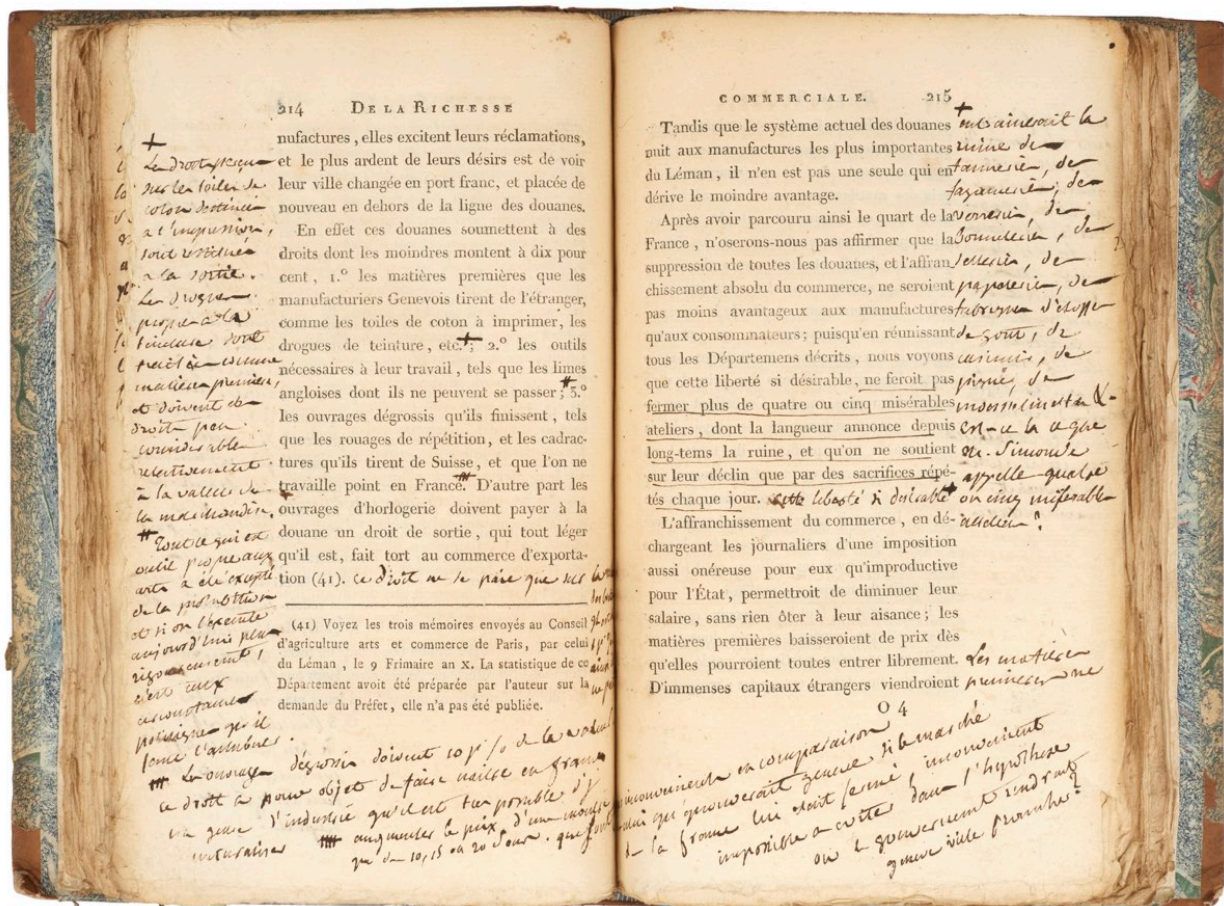 214 DE LA RICHESSE
nufactures, elles excitent leurs réclamations,
et le plus ardent de leurs désirs est de voir
leur ville changée en port franc, et placée de
nouveau en dehors de la ligne des douanes.
En effet ces douanes soumettent à des
droits dont les moindres montent à dix pour
cent, 1.° les matières premières que les
manufacturiers Genevois tirent de l'étranger,
comme les toiles de coton à imprimer, les
drogues de teinture, etc.; 2.° les outils
nécessaires à leur travail, tels que les limes
angloises dont ils ne peuvent se passer; 3.°
les ouvrages dégrossis qu'ils finissent, tels
que les rouages de répétition, et les cadrac-
tures qu'ils tirent de Suisse, et que l'on ne
travaille point en France. D'autre part les
ouvrages d'horlogerie doivent payer à la
douane un droit de sortie, qui tout léger
qu'il est, fait tort au commerce d'exporta-
tion (41). ce droit ne se paie que sur
(41) Voyez les trois mémoires envoyés au Conseil
d'agriculture arts et commerce de Paris, par celui
du Léman, le 9 Frimaire an X. La statistique de ce
Département avoit été préparée par l'auteur sur la
demande du Préfet, elle n'a pas été publiée.
+
Les droits
sur les toiles de
coton destinées
a l'impression,
sont restitués
a la sortie.
Les drogues
propres a la
teinture sont
traitées comme
matieres premieres,
et doivent des
droits peu
considerables
relativement
à la valeur de
la marchandise.
# Tout ce qui est
outil propre aux
arts a été excepté
de la prohibition
et si on l'execute
aujourd'hui plus
rigoureusement,
c'est aux
circonstances
politiques qu'il
faut l'attribuer.
Les ouvrages dégrossis doivent 10 p% de la valeur
ce droit a pour objet de faire naitre en france
un genre d'industrie qu'il est tres possible d'y
naturaliser
augmenter le prix d'une montre
que de 10, 15 ou 20 sous.
COMMERCIALE. 215
Tandis que le système actuel des douanes
nuit aux manufactures les plus importantes
du Léman, il n'en est pas une seule qui en
dérive le moindre avantage.
Après avoir parcouru ainsi le quart de la
France, n'oserons-nous pas affirmer que la
suppression de toutes les douanes, et l'affran
chissement absolu du commerce, ne seroient
pas moins avantageux aux manufactures
qu'aux consommateurs; puisqu'en réunissant
tous les Départemens décrits, nous voyons
que cette liberté si désirable, ne feroit pas
fermer plus de quatre ou cinq misérables
ateliers, dont la langueur annonce depuis
long-tems la ruine, et qu'on ne soutient
sur leur déclin que par des sacrifices répé-
tés chaque jour. cette liberté si desirable
L'affranchissement du commerce, en dé-
chargeant les journaliers d'une imposition
aussi onéreuse pour eux qu'improductive
pour l'État, permettroit de diminuer leur
salaire, sans rien ôter à leur aisance; les
matières premières baisseroient de prix dès
qu'elles pourroient toutes entrer librement.
D'immenses capitaux étrangers viendroient
O 4
+
entrainerait la
ruine de
tanneries, de
verreries, de
bonneteries, de
selleries, de
papeteries, de
fabriques d'étoffes
de gout, de
casimirs, de
piqués, de
mousselinettes &.
est-ce la ce que
M. Simonde
appelle quatre
ou cinq miserables
atteliers?
Les matieres
premieres ne
inconvenients en comparaison
celui qu'eprouverait geneve si le marché
de la france lui etait fermé, inconvenient
impossible a eviter dans l'hypothese
ou le gouvernement rendrait
geneve ville franche?